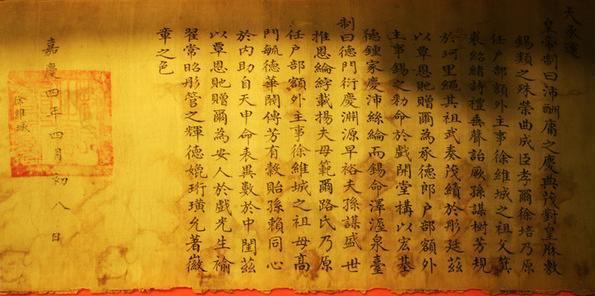 天承運
皇帝制曰沛酬庸之慶典茂對皇庥敷
錫類之殊榮曲成臣孝爾徐培乃原
任戶部額外主事徐維城之祖父箕
裘紹緒詩禮垂聲詒厥孫謀樹芳規
於珂里繩其祖武奏茂績於彤廷茲
以覃恩貤贈爾為承德郎戶部額外
主事錫之勅命於戲開堂構以宏基
德鍾家慶沛絲綸而錫命澤渥泉臺
制曰德門衍慶淵源早裕夫孫謀盛世
推恩綸綍載揚夫母範爾路氏乃原
任戶部額外主事徐維城之祖母高
門毓德華閥傳芳有穀貽孫賴同心
於內助自天申命表異數於中閨茲
以覃恩貤贈爾為安人於戲光生褕
翟常昭彤管之輝德媲珩璜允著徽
章之色
嘉慶四年四月初八日
徐維城